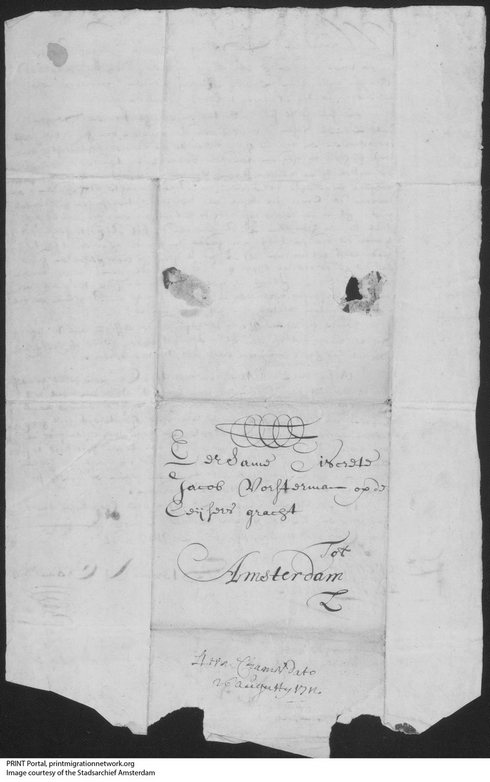 Eersame Discrete
Jacob Vorsterman op de
Ceijsers gracht
Tot
Amsterdam
dato
26 augusty
PRINT Portal, printmigrationnetwork.org
Image courtesy of the Stadsarchief Amsterdam